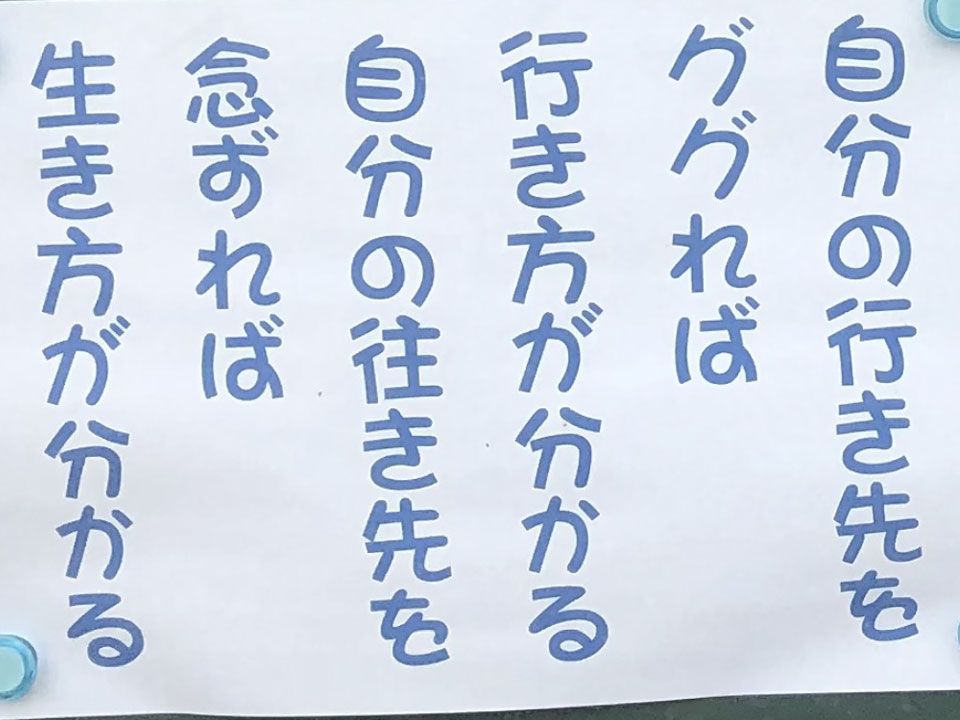 自分の行き先を
ググれば
行き方が分かる
自分の往き先を
念ずれば
生き方が分かる